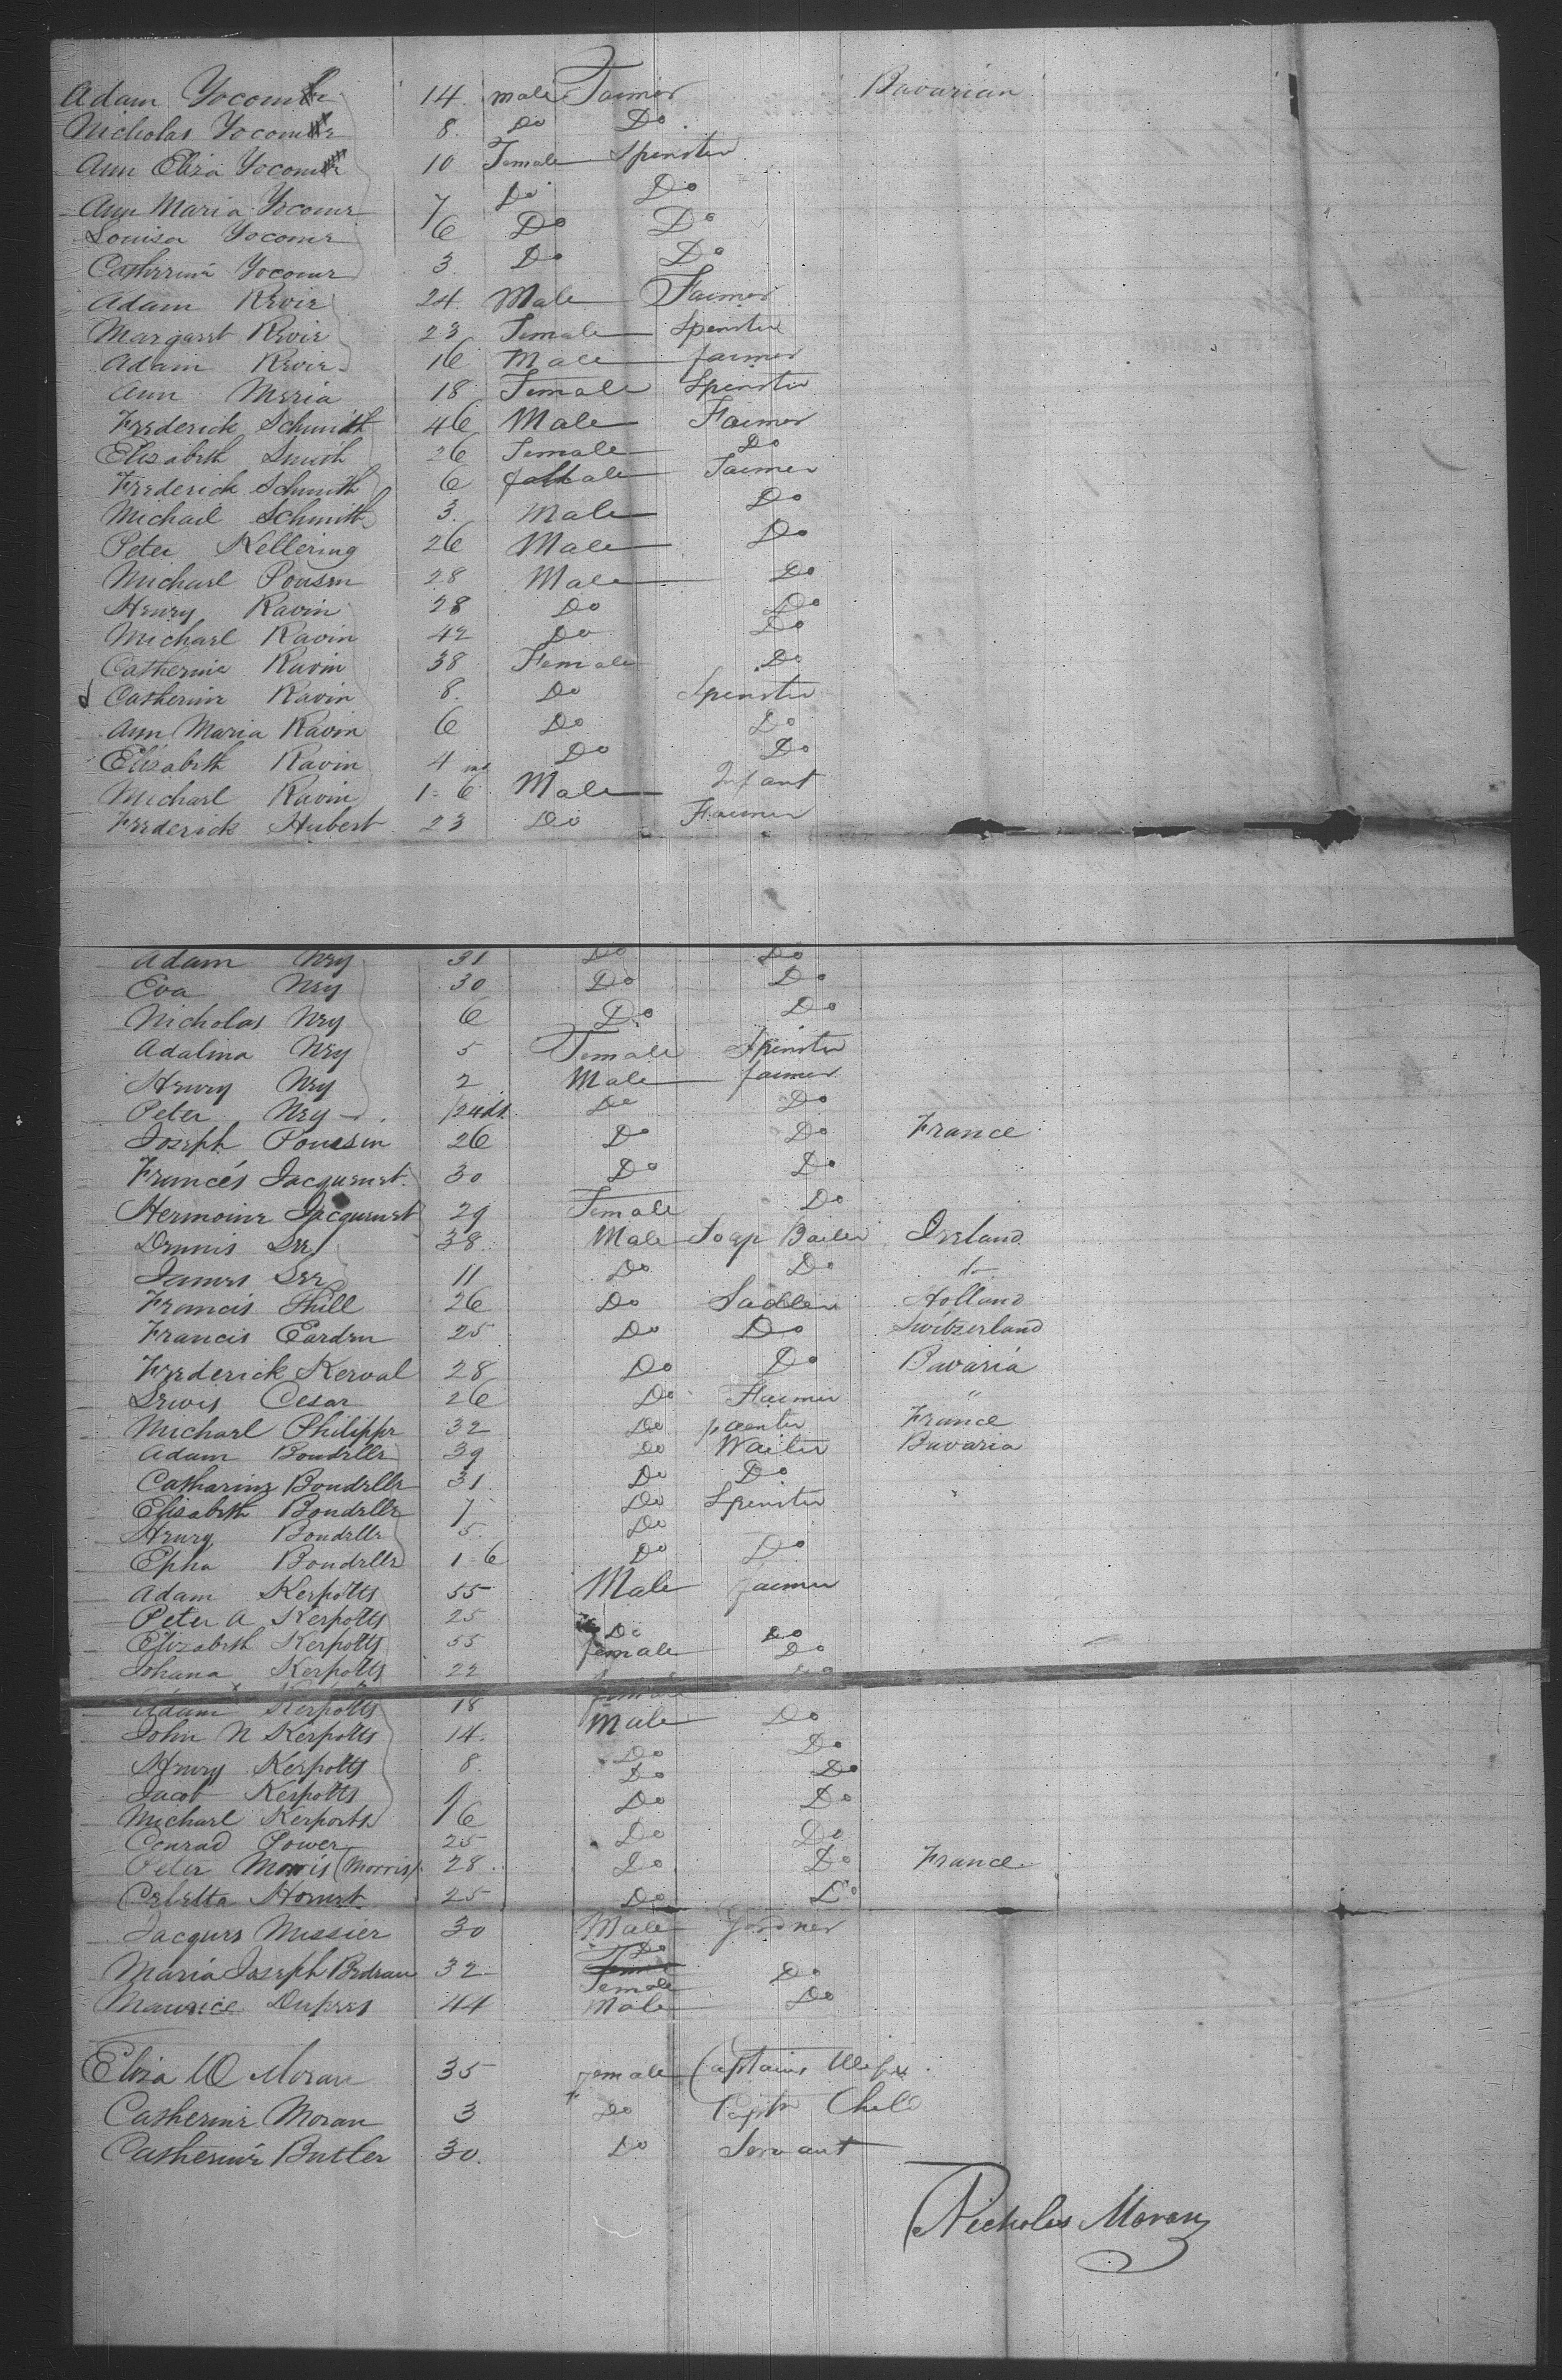 Adam Yocome 14 male Farmer Bavarian
Nicholas Yocome 8 Do Do
Ann Eliza Yocome 10 Female Spinster
Ann Maria Yocome 7 Do Do
Louisa Yocome 6 Do Do
Catherine Yocome 3 Do Do
Adam Revir 24 Male Farmer
Margaret Revir 23 Female Spinster
Adam Revir 16 Male farmer
Ann Meria 18 Female Spinster
Frederick Schmith 46 Male Farmer
Elizabeth Smith 26 Female Do
Frederick Schmith 6 Farmer
Michael Schmith 3 Male Do
Peter Kellering 26 Male Do
Michael Pousen 28 Male Do
Henry Ravin 28 Do Do
Michael Ravin 42 Do Do
Catherine Ravin 38 Female Do
Catherine Ravin 8 Do Spinster
Ann Maria Ravin 6 Do Do
Elizabeth Ravin 4 Do Do
Michael Ravin 1-6 Male Infant
Frederick Hubert 23 Do Farmer
Adam Ney 31 Do Do
Eva Ney 30 Do Do
Nicholas Ney 6 Do Do
Adalina Ney 5 Female Spinster
Henry Ney 2 Male farmer
Peter Ney Do Do
Joseph Poussin 26 Do Do France
Francés Jacquenet 30 Do Do
Hermoine Jacquenet 29 Female Do
Dennis Lee 38 Male Soap Boiler Ireland
James Lee 11 Do Do do
Francis Phill 26 Do Sadler Holland
Francis Earden 25 Do Do Switzerland
Frederick Kerval 28 Do Do Bavaria
Lewis Cesar 26 Do Farmer "
Michael Philippe 32 Do painter France
Adam Boudelle 39 Do Waiter Bavaria
Catharine Boudelle 31 Do Do
Elisabeth Boudelle 7 Do Spinster
Henry Boudelle 5 Do
Epha Boudelle 1-6 Do Do
Adam Kerpotts 55 Male farmer
Peter A Kerpotts 25 Do Do
Elizabeth Kerpotts 55 female Do
Johana Kerpotts 22 female Do
Adam Kerpotts 18 Male Do
John N Kerpotts 14 Do Do
Henry Kerpotts 8 Do Do
Jacob Kerpotts 7 Do Do
Michael Kerpotts 6 Do Do
Conrad Power 25
Peter Morris (Morris) 28 Do Do France
Celetta Homet 25 Do Do
Jacques Messier 30 Male Gardner
Maria Joseph Bedeau 32 Do Female Do
Maurice Dupres 44 Male Do
Eliza M Moran 35 female Captains Wife
Catherine Moran 3 Do Capts Child
Catherine Butler 30 Do Servant
Nicholas Moran